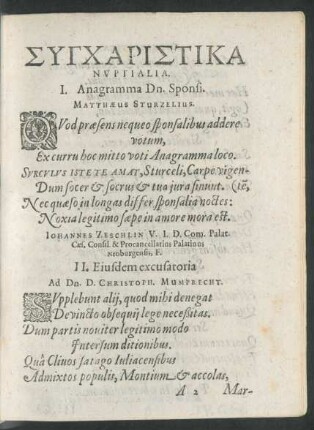 ΣΥΓΧΑΡΙΣΤΙΚΑ
NVPTIALIA.
I. Anagramma Dn. Sponsi.
MATTHÆUS STURZELIUS.
QVod præsens nequeo sponsalibus addere
votum,
Ex curru hoc mitto voti Anagramma loco.
SURCULUS ISTE TE AMAT, Sturceli, Carpe vigen-
Dum socer & socrus & tua jura sinunt. (tē,
Nec quæso in longas differ sponsalia noctes:
Noxia legitimo sæpe in amore mora est.
IOHANNES ZESCHLIN V. I. D. Com. Palat.
Cæs. Consil. & Procancellarius Palatinus
Neoburgensis, F.
II. Eiusdem excusatoria
Ad Dn. D. CHRISTOPH. MUMPRECHT.
SVpplebunt alij, quod mihi denegat
Devincto obsequij lege necessitas.
Dum partis noviter legitimo modo
Intersum ditionibus.
Quâ Clivos satago Iuliacensibus
Admixtos populis, Montium & accolas,
A 2 Mar-